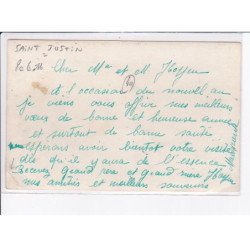 SAINT JUSTIN
Cher Mr et M
à l'occasion du nouvel an
je viens vous offrir mes meilleurs
vœux de bonne et heureuse année
et surtout de bonne santé
esperons avoir bientot votre visite
dès qu'il y aura de l'essence
Recevez grand père et grand mère
mes amitiés et meilleurs souvenirs
Marguerite